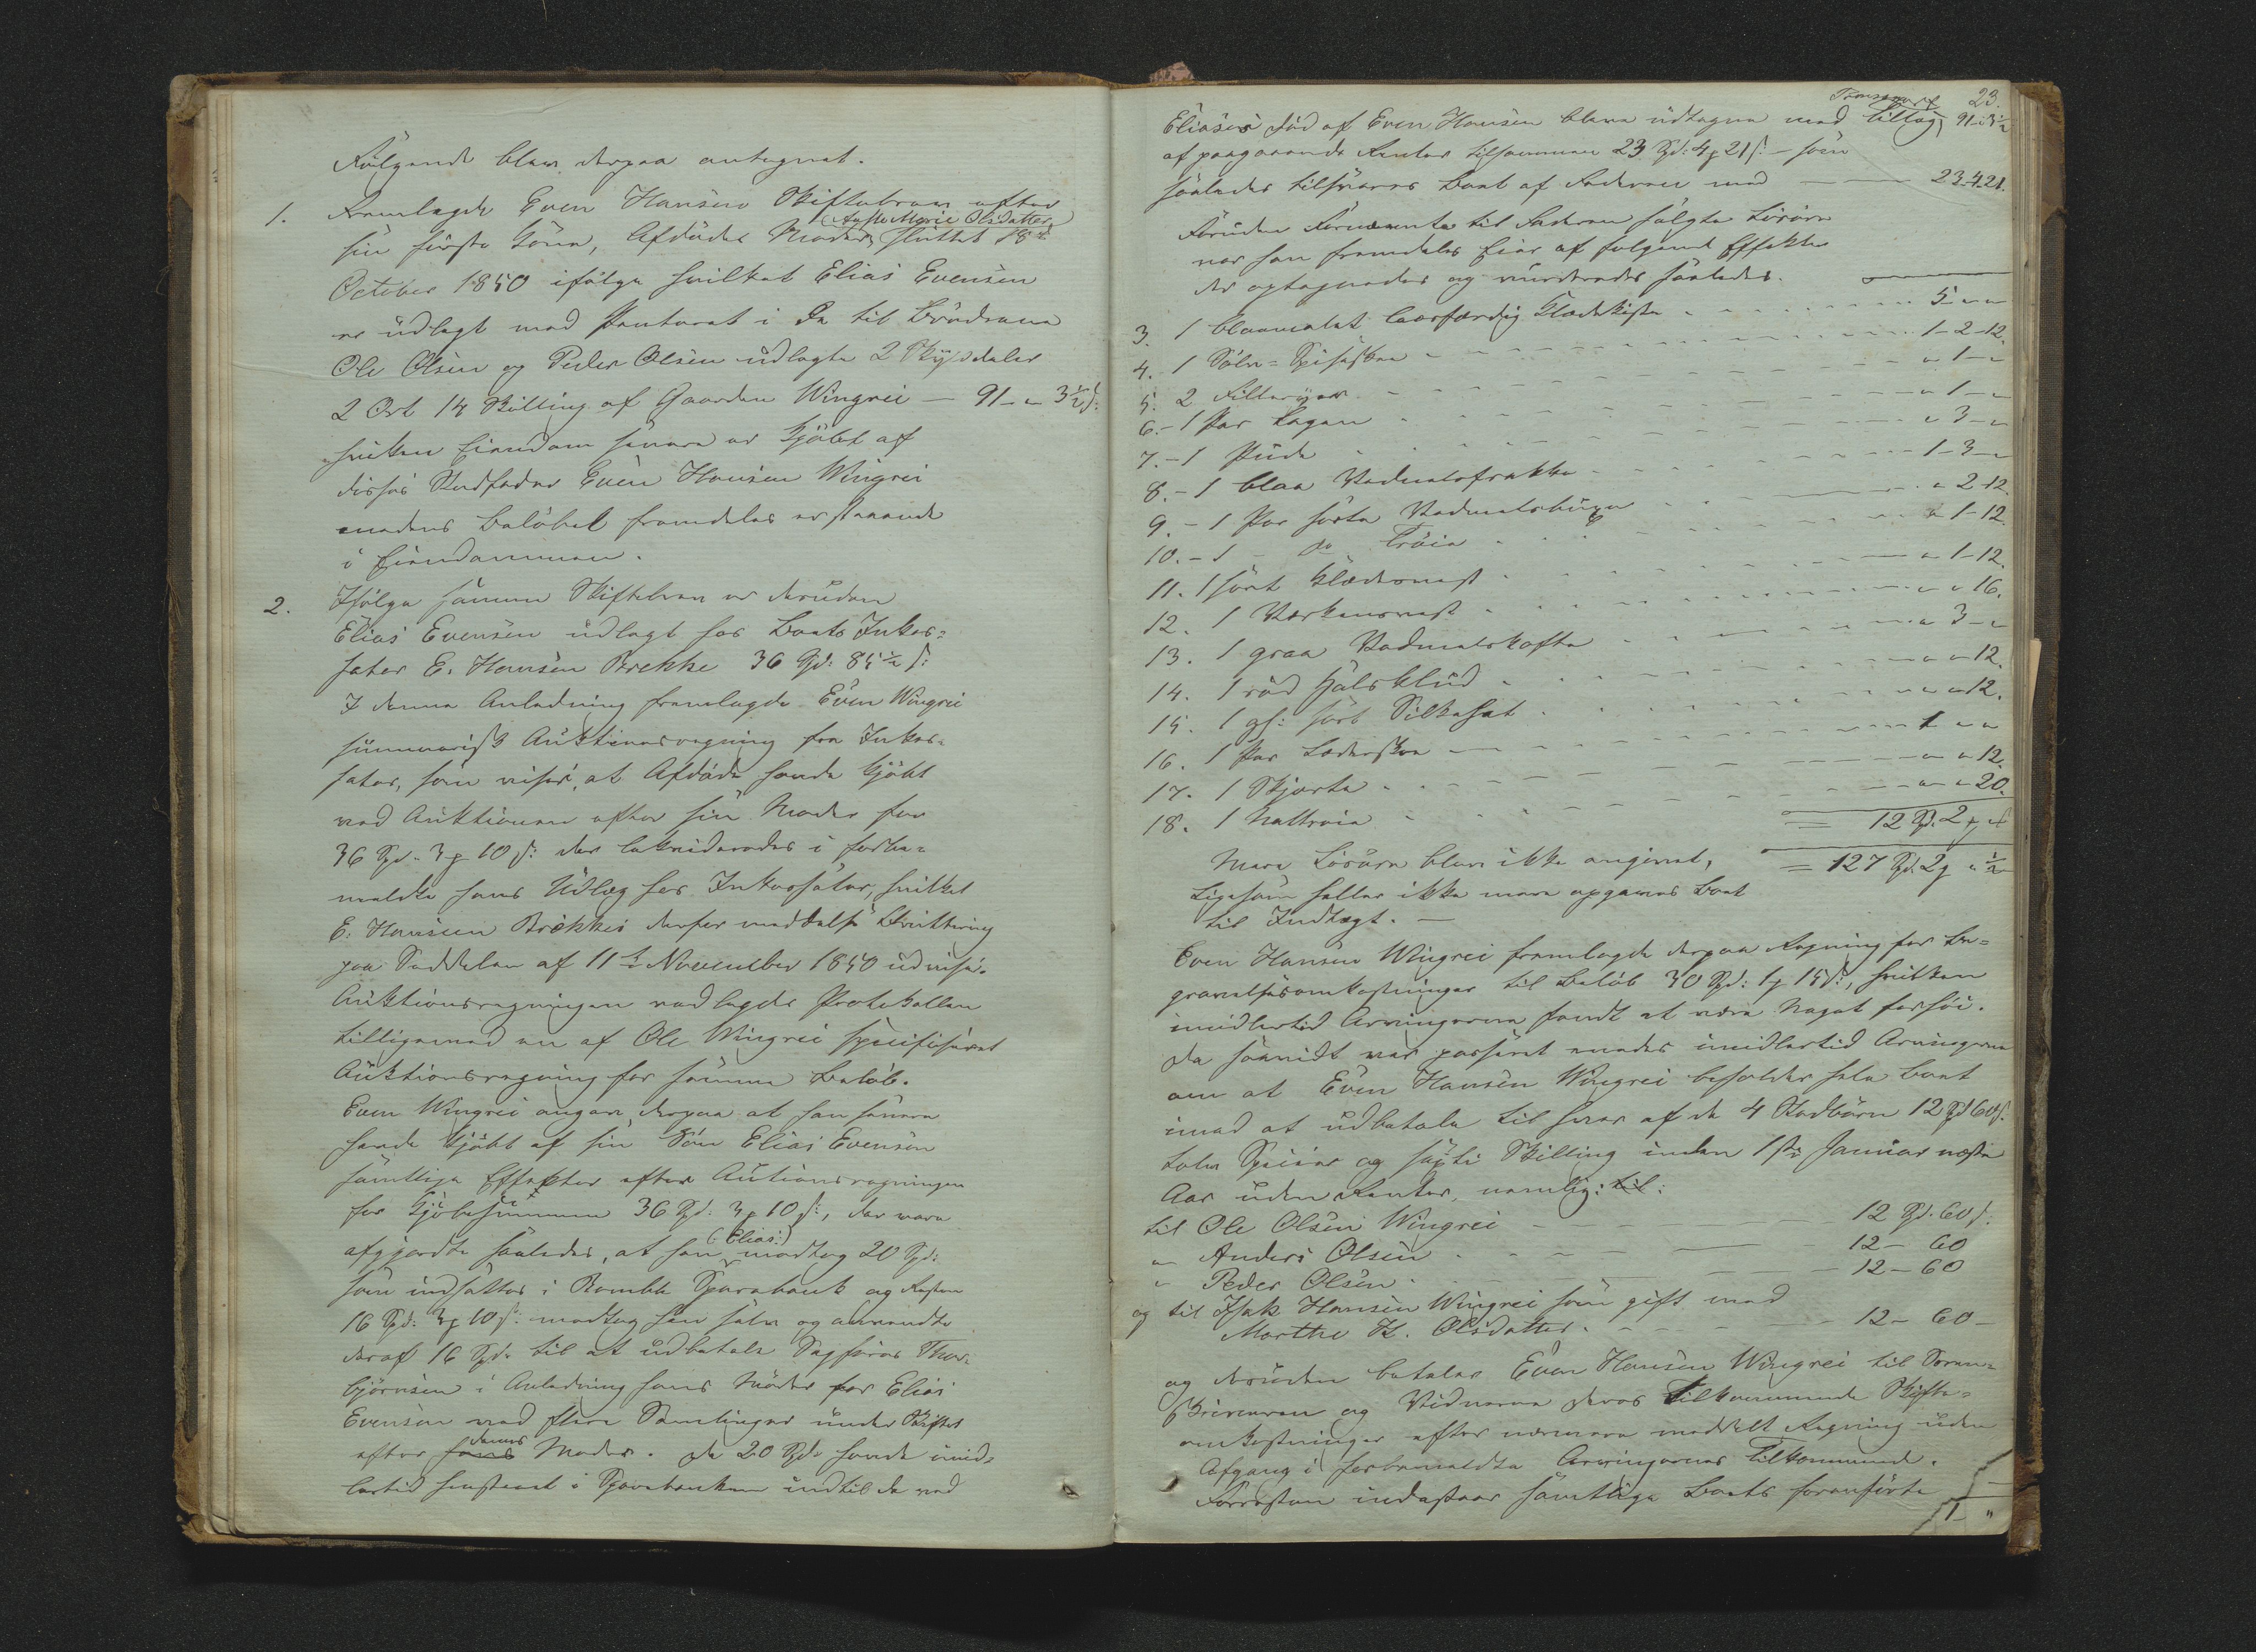 Følgende blev derpaa antegnet.
1. Fremlagde Even Hansen Skiftebrev efter
Aaste Marie Olsdatter
sin første Kone, Afdødes Moder, sluttet 18de
October 1850 ifølge hvilket Elias Evensen
er udlagt med Panteret i de til Brødrene
Ole Olsen og Peder Olsen udlagte 2 Skyldaler
2 Ort 14 Skilling af Gaarden Wingrei — 91 - " 3½ s:
hvilken Eiendom senere er kjøbt af
disses Stedfader Even Hansen Wingrei
medens Beløbet fremdeles er staaende
i Eiendommen.
2. Ifølge samme Skiftebrev er desuden
Elias Evensen udlagt hos Boets Inkas=
sator E. Hansen Brekke 36 Spd: 85½ s:
I denne Anledning fremlagde Even Wingrei
summarisk Auktionsregning fra Inkas=
sator, som viser, at Afdøde havde kjøbt
ved Auktionen efter sin Moder for
36 Spd. 3 ƒ 10 s: der likvideredes i forbe=
meldte hans Udlæg hos Inkassator, hvilket
E. Hansen Brekkes derfor meddelte Kvittering
paa Seddelen af 11te November 1850 udviser.
Auktionsregningen vedlagdes Protokollen
tilligemed en af Ole Wingrei specificeret
Auktionsregning for samme Beløb.
Even Wingrei angav derpaa at han senere
havde kjøbt af sin Søn Elias Evensen
samtlige Effekter efter Auktionsregningen
for Kjøbesummen 36 Spd: 3 ƒ 10 s:, der vare
(: Elias :)
afgjordte saaledes, at han modtog 20 Spd:
som indsattes i Bamble Sparebank og Resten
16 Spd: 3 ƒ 10 s: modtog han selv og anvendte
deraf 16 Spd. til at udbetale Sagfører Thor=
bjørnsen i Anledning hans Møder for Elias
Evensen ved flere Samlinger under Skiftet
dennes
efter hans Moder. De 20 Spd. havde imid=
lertid henstaaet i Sparebanken indtil de ved
23.
Transport
Eliases Død af Even Hansen bleve udtagne med Tillæg 91 " 3½
af paagaaende Renter tilsammen 23 Spd: 4 ƒ 21 s: – som
saaledes tilsvares Boet af Faderen med — — 23.4.21.
Foruden Fornævnte til Faderen solgte Løsøre
var han fremdeles Eier af følgende Effekter
der optegnedes og vurderedes saaledes.
3. 1 blaamalet laasfærdig Klædekiste - - - 5 " "
4. 1 Sølv=Spiseskee - - - 1-2-12.
5. 2 Filteryer - - - " 1 - "
6. - 1 Par Lagen - - - " 1 - "
7. - 1 Pude - - - " 3 - "
8. - 1 blaa Vadmelsfrakke - - - 1-3-"
9. - 1 Par sorte Vadmelsbuxer - - - " 2-12.
10. - 1 - do Trøie - - - " 1-12.
11. 1 sort Klædesvest - - - " 1-12.
12. 1 Værkensvest - - - " " 16.
13. 1 graa Vadmelskofte - - - " 3 - "
14. 1 rød Halsklud - - - " " 12.
15. 1 gl: sort Silkehat - - - " " 12.
16. 1 Par Læderskoe - - - 1 " "
17. 1 Skjorte - - - " " 12.
18. 1 Nattrøie - - - " " 20.
= 12 Spd. 2 ƒ " s
Mere Løsøre blev ikke angivet, = 127 Spd. 2 ƒ " ½
ligesom heller ikke mere opgaves Boet
til Indtægt. —
Even Hansen Wingrei fremlagde derpaa Regning for Be=
gravelsesomkostninger til Beløb 30 Spd: 1 ƒ 15 s:, hvilken
imidlertid Arvingerne fandt at være Noget forhøi.
Da saavidt var passeret enedes imidlertid Arvingerne
om at Even Hansen Wingrei beholder hele Boet
imod at udbetale til hver af de 4 Stedbørn 12 Spd 60 s.
tolv Specier og sexti Skilling inden 1ste Januar næste
Aar uden Renter, nemlig: til:
til Ole Olsen Wingrei - - - 12 Spd. 60 s:
" Anders Olsen - - - 12 - 60
" Peder Olsen - - - 12 - 60
og til Isak Hansen Wingrei som gift med
Marthe K. Olsdatter. - - - 12 - 60 -
og desuden betaler Even Hansen Wingrei til Soren=
skriveren og Vidnerne deres Tilkommende Skifte=
omkostninger efter nærmere meddelt Regning uden
Afgang i forbemeldte Arvingernes Tilkommende.
Forresten indestaar samtlige Boets foranførte